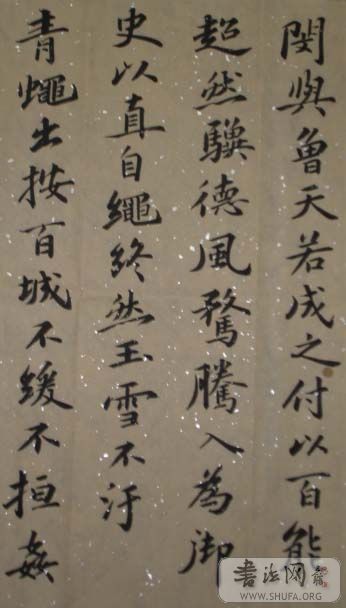 閔與魯天若成之付以百能
超然驥德風騖騰入為御
史以真自繩終然玉雪不汙
青蠅出按百城不緩不搄姦
書法网
WWW.SHUFA.ORG